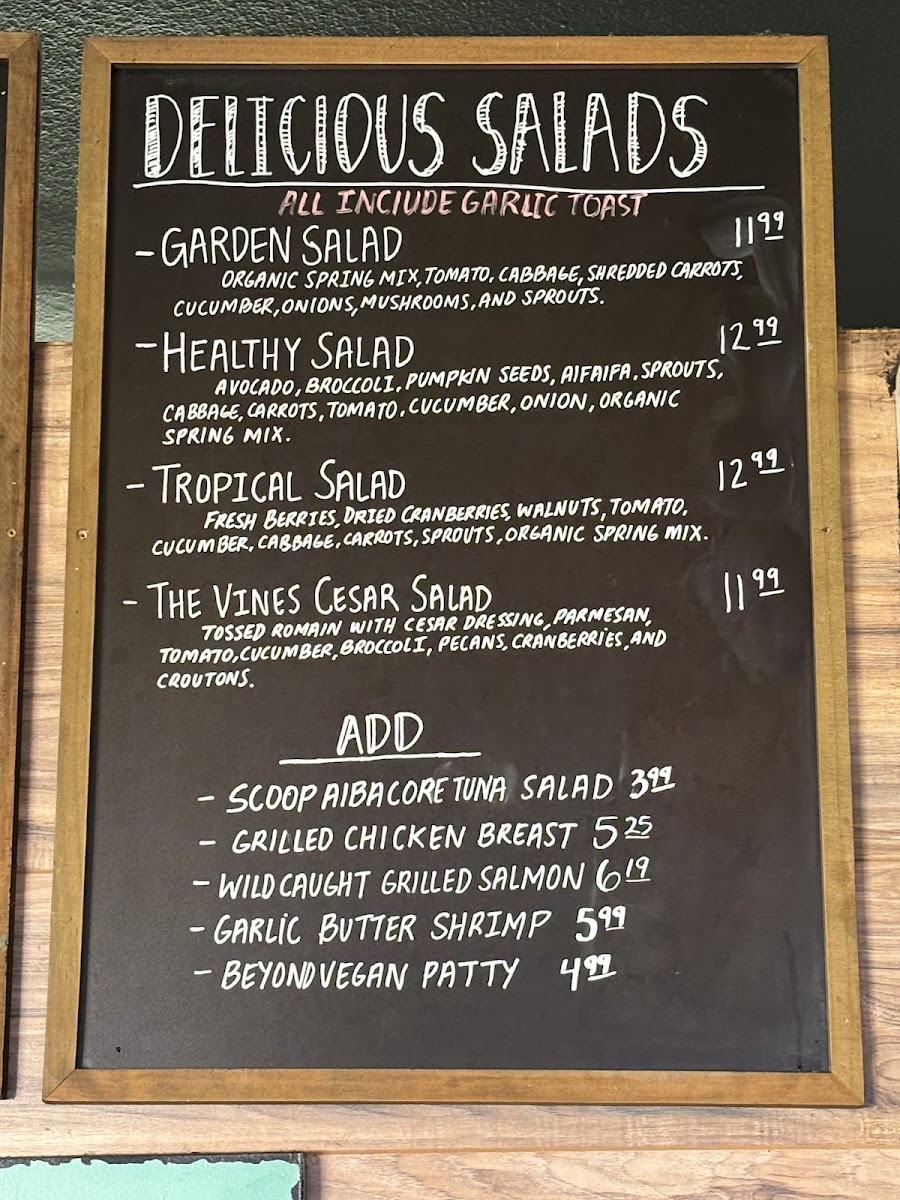 DELICIOUS SALADS
ALL INCLUDE GARLIC TOAST
- GARDEN SALAD 11.99
ORGANIC SPRING MIX, TOMATO, CABBAGE, SHREDDED CARROTS,
CUCUMBER, ONIONS, MUSHROOMS, AND SPROUTS.
- HEALTHY SALAD 12.99
AVOCADO, BROCCOLI, PUMPKIN SEEDS, AlFAlFA, SPROUTS,
CABBAGE, CARROTS, TOMATO, CUCUMBER, ONION, ORGANIC
SPRING MIX.
- TROPICAL SALAD 12.99
FRESH BERRIES, DRIED CRANBERRIES, WALNUTS, TOMATO,
CUCUMBER, CABBAGE, CARROTS, SPROUTS, ORGANIC SPRING MIX.
- THE VINES CESAR SALAD 11.99
TOSSED ROMAIN WITH CESAR DRESSING, PARMESAN,
TOMATO, CUCUMBER, BROCCOLI, PECANS, CRANBERRIES, AND
CROUTONS.
ADD
- SCOOP AlBACORE TUNA SALAD 3.99
- GRILLED CHICKEN BREAST 5.25
- WILD CAUGHT GRILLED SALMON 6.19
- GARLIC BUTTER SHRIMP 5.99
- BEYOND VEGAN PATTY 4.99